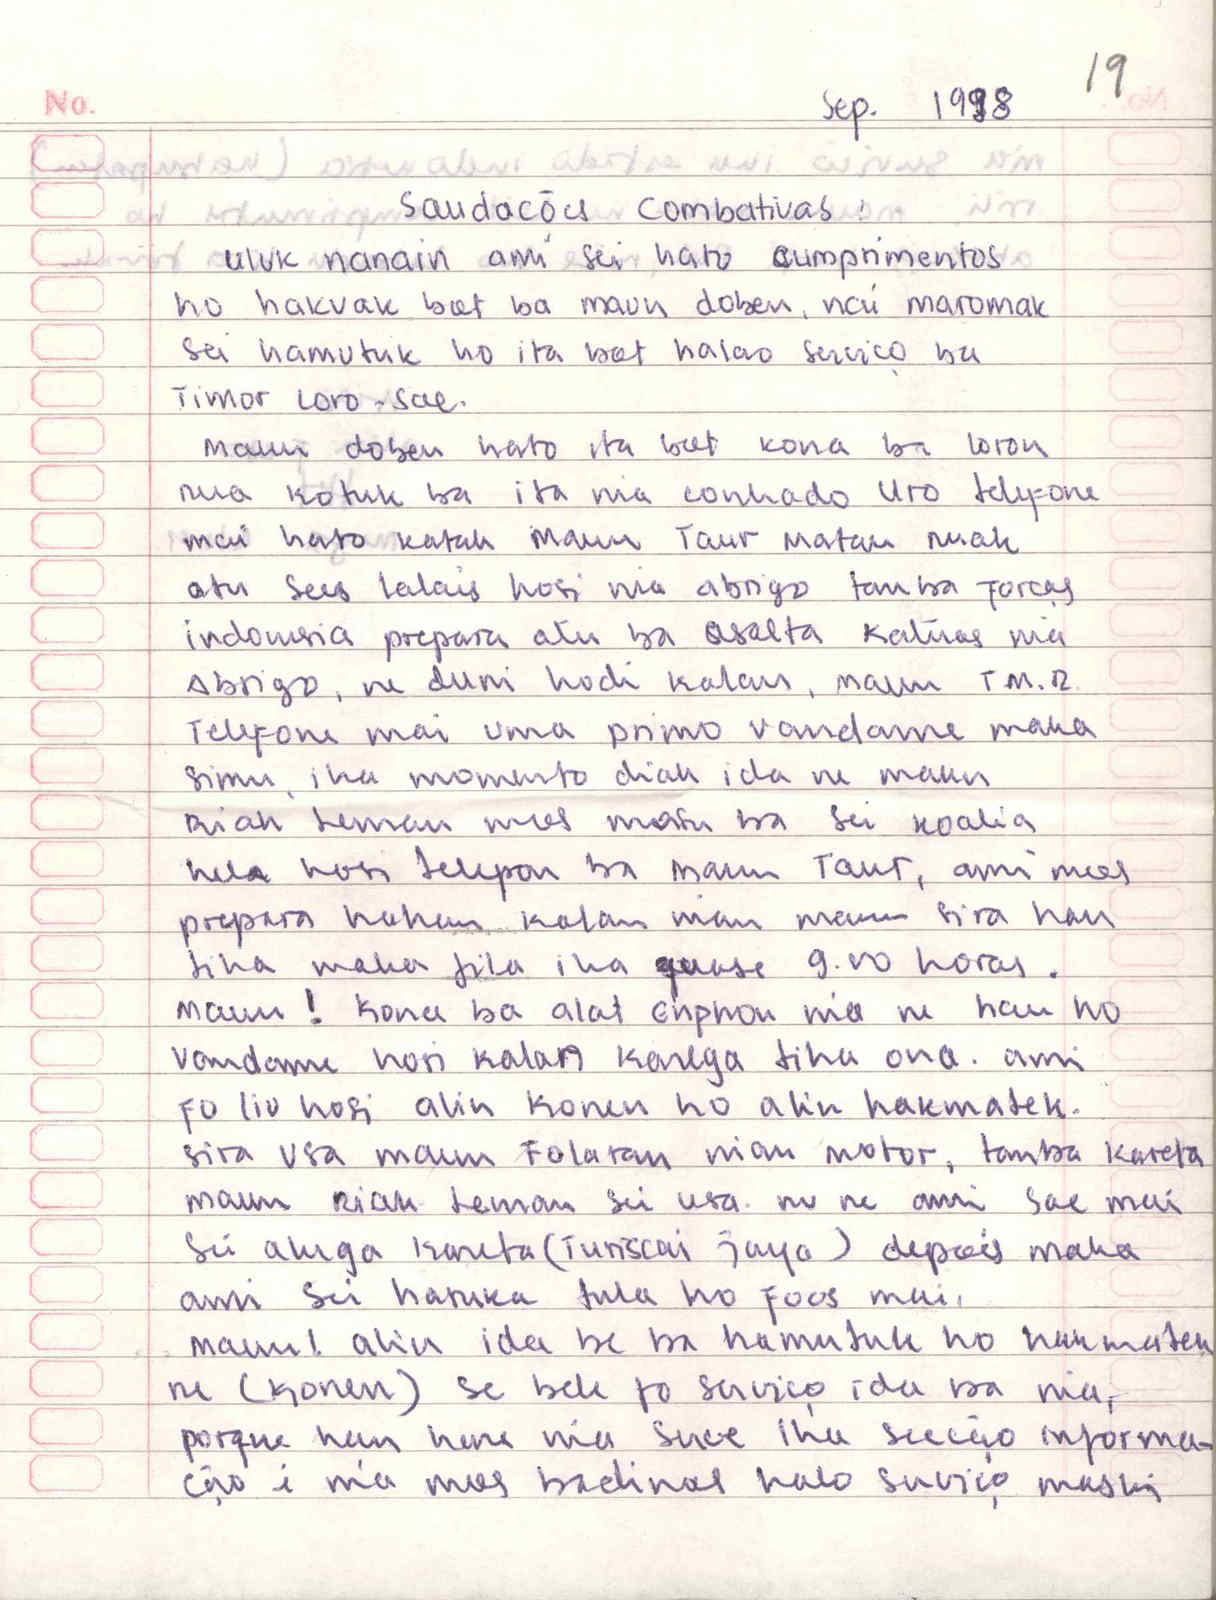 19
No.
Sep. 1998
Saudações Combativas!
Uluk nanain ami sei hato cumprimentos
ho hakuak boet ba maun doben, nai maromak
sei hamutuk ho ita boet halao serviço ba
Timor Loro-Sae.
Maun doben hato ita boet kona ba loron
rua kotuk ba ita nia conhado Uto telefone
mai hato katak maun Taur Matan Ruak
atu sees lalais hosi nia abrigo tamba forças
indonesia prepara atu ba asalta katuas nia
Abrigo, ne duni hodi kalan, maun T.M.R.
Telefone mai uma primo Vandame maka
simu, iha momento diak ida ne maun
Riak Leman mos mosu ba sei koalia
hela hosi telepon ba maun Taur, ami mos
prepara hahan kalan nian maun sira han
tiha maka fila iha quase 9.00 horas.
Maun! Kona ba alat enphon nia ne hau ho
Vandame hosi kalan karega tiha ona. ami
fo liu hosi alin Konen ho alin hakmatek.
sira usa maun Folaran nian motor, tamba kareta
maun Riak Leman sei usa. no ne ami sae mai
sei aluga kareta (Turiscai Jaya) depois maka
ami sei haruka tula ho foos mai.
Maun! alin ida be ba hamutuk ho hakmatek
ne (Konen) se bele fo serviço ida ba nia,
porque hau hare nia suce iha secção informa-
ção i nia mos badinas halo serviço maski